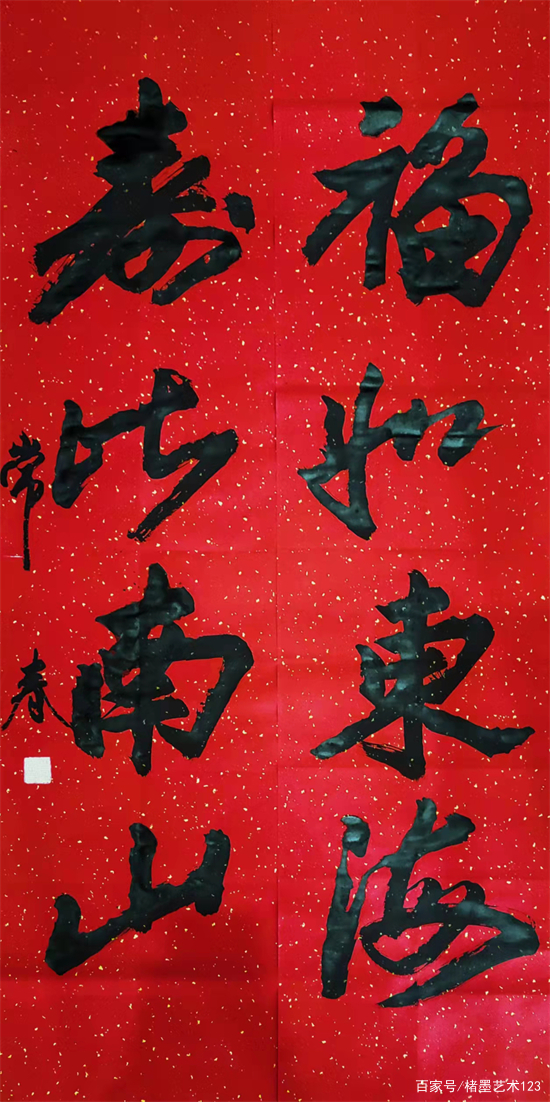 福如東海
寿比南山
常春
百家号/楮墨艺术123